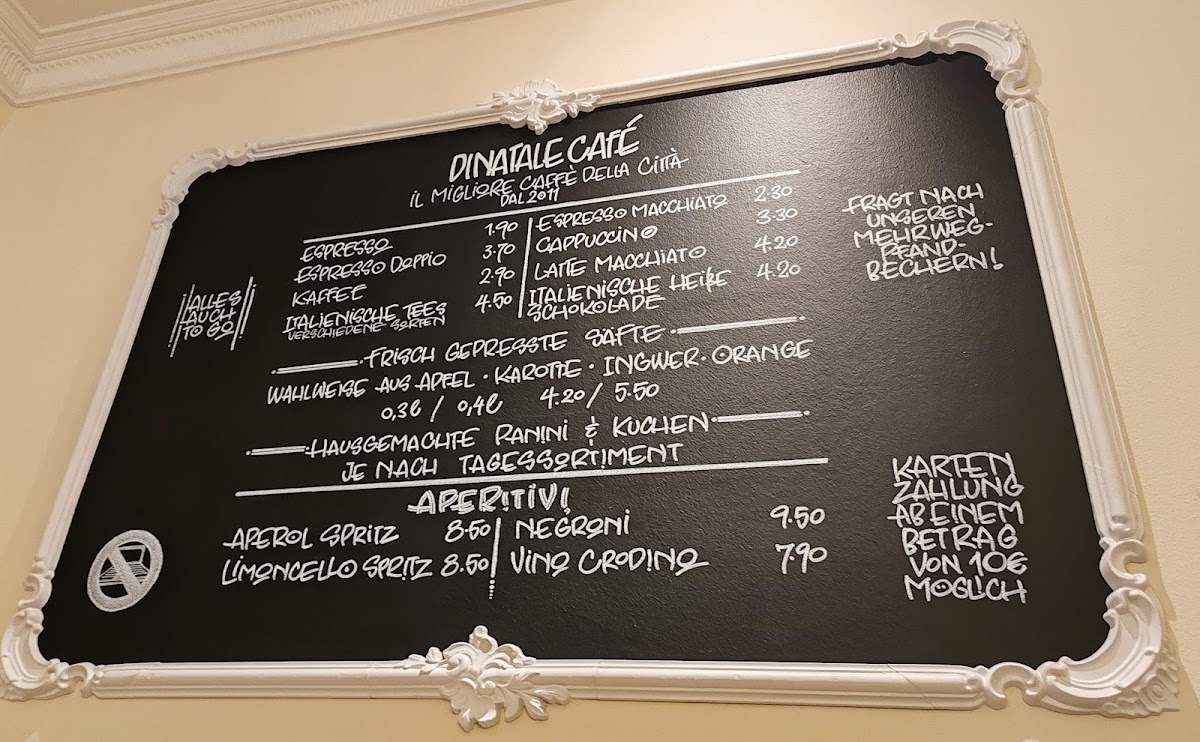 DINATALE CAFÉ
IL MIGLIORE CAFFÈ DELLA CITTÀ
DAL 2011
ESPRESSO 1.90
ESPRESSO DOPPIO 3.70
KAFFEE 2.90
ITALIENISCHE TEES 4.50
VERSCHIEDENE SORTEN
ESPRESSO MACCHIATO 2.30
CAPPUCCINO 3.30
LATTE MACCHIATO 4.20
ITALIENISCHE HEIßE 4.20
SCHOKOLADE
ALLES
AUCH
TO GO
FRAGT NACH
UNSEREN
MEHRWEG-
PFAND-
BECHERN!
FRISCH GEPRESSTE SÄFTE
WAHLWEISE AUS APFEL · KAROTTE · INGWER · ORANGE
0,3l / 0,4l 4.20 / 5.50
HAUSGEMACHTE PANINI & KUCHEN
JE NACH TAGESSORTIMENT
APERITIVI
APEROL SPRITZ 8.50
LIMONCELLO SPRITZ 8.50
NEGRONI 9.50
VINO CRODINO 7.90
KARTEN
ZAHLUNG
AB EINEM
BETRAG
VON 10€
MÖGLICH